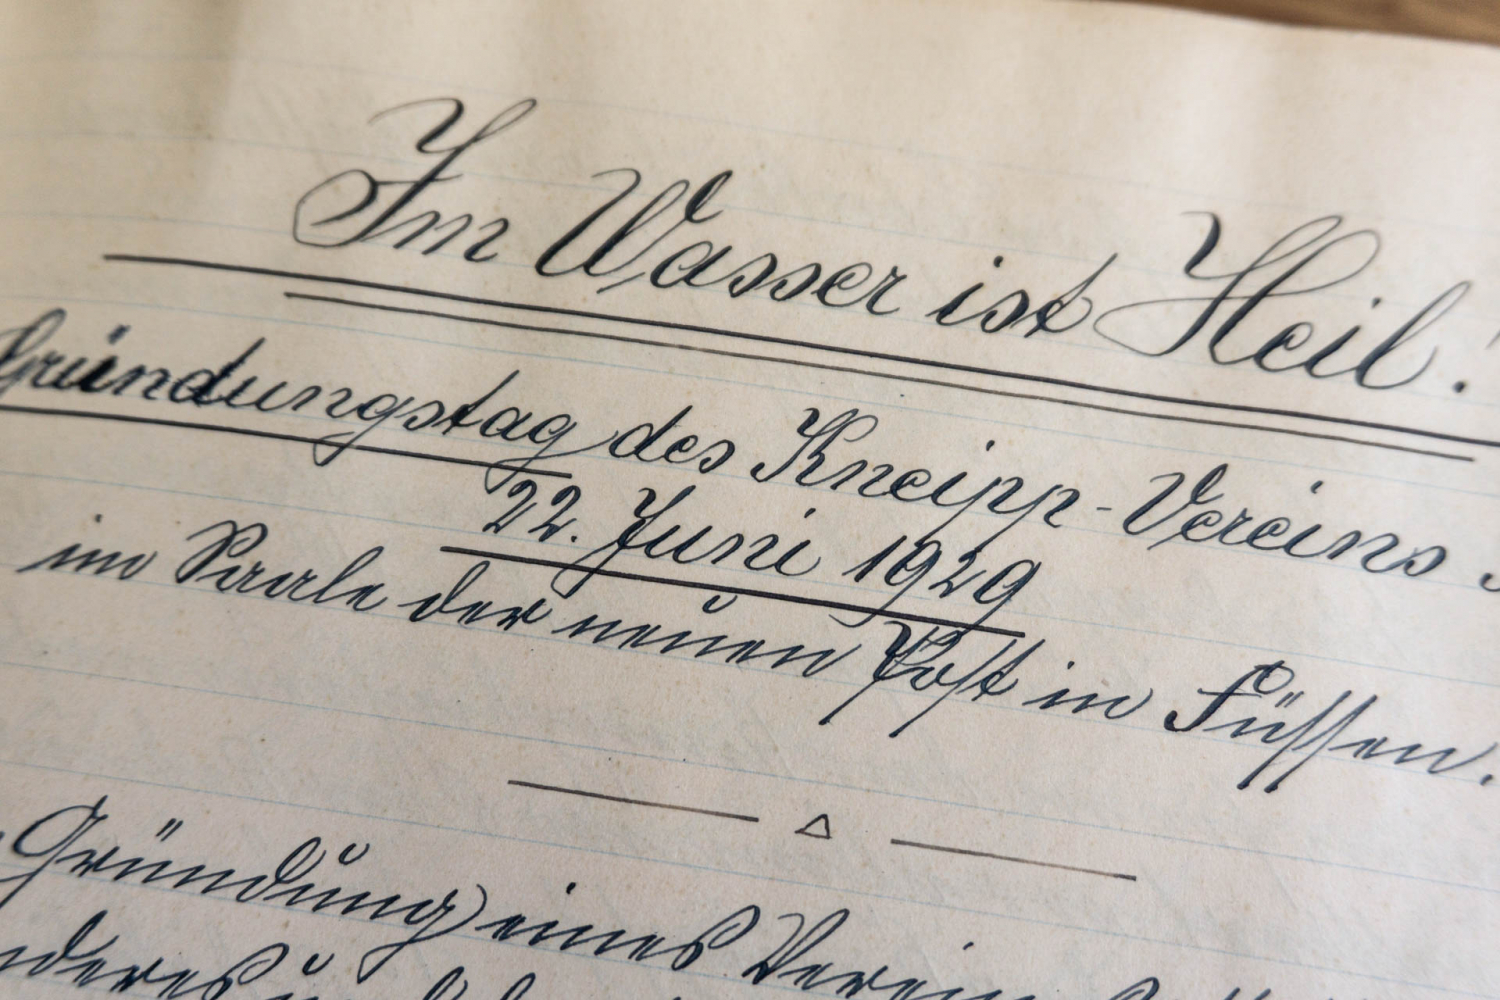 Im Wasser ist Heil!
Gründungstag des Kneipp-Vereins
22. Juni 1929
im Saale der neuen Post in Füssen.
Gründung eines